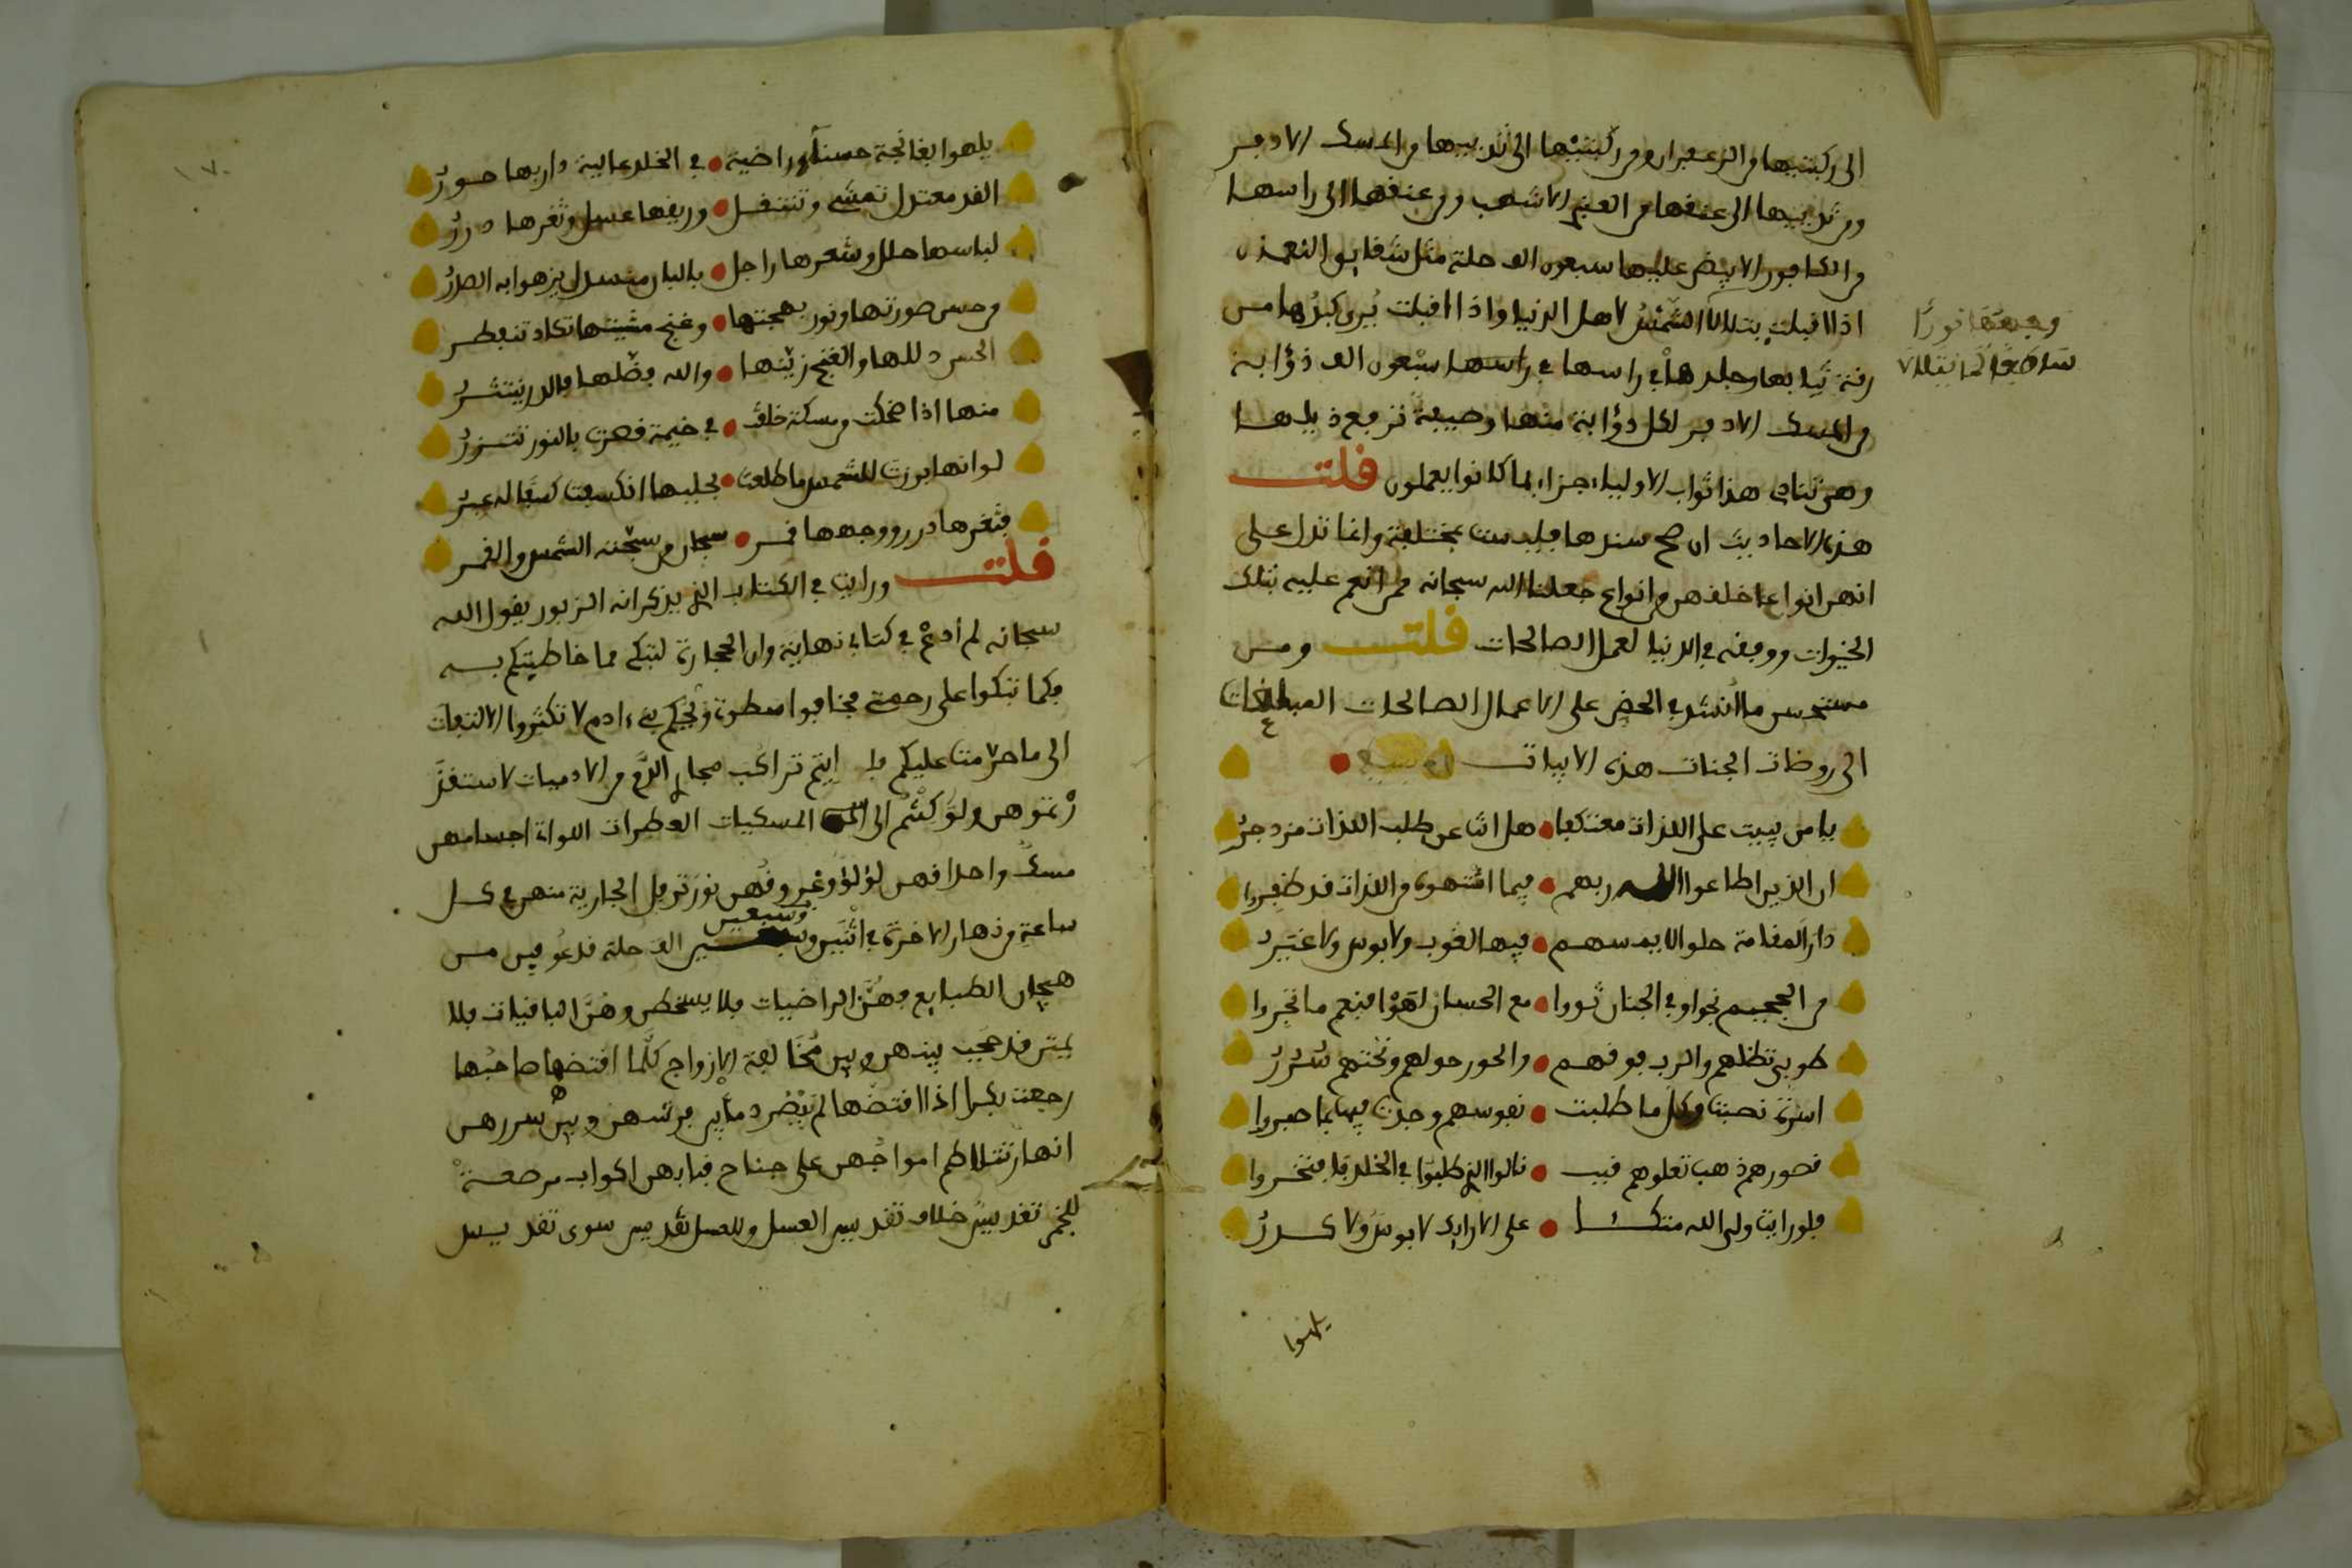 الى ركبتيها من الزعفران ومن ركبتيها الى ثدييها من المسك الاذفر
ومن ثدييها الى عنقها من العنبر الاشهب ومن عنقها الى راسها
من الكافور الابيض عليها سبعون الف حلة مثل شقايق النعمن
اذا اقبلت يتلالا الشمس لاهل الدنيا واذا اقبلت يرى كبدها من
رقة ثيابها وجلدها في راسها في راسها سبعون الف ذؤابة
من المسك الاذفر لكل ذؤابة منها وصيفة ترفع ذيلها
وهي تنادي هذا ثواب الاولياء جزاء بما كانوا يعملون قلت
هذه الاحاديث ان صح سندها فليست بمختلفة وانما تدل على
انهن انواعا خلقهن من انواع جعلنا الله سبحانه ممن انعم عليه بتلك
الخيرات ووفقه في الدنيا لعمل الصالحات قلت ومن
مستحسن ما انشد في الحض على الاعمال الصالحات المبلغات
الى روضات الجنات هذه الابيات
يا من يبيت على اللذات معتكفا هل انت عن طلب اللذات مزدجر
ان الذين اطاعوا الله ربهم فيما اشتهوه من اللذات قد ظفروا
دار المقامة حلوا لا يمسهم فيها لغوب ولا بوس ولا غير
من الجحيم نجوا وفي الجنان ثووا مع الحسان لهوا فنعم ما تجروا
طوبى تظلهم والرب فوقهم والحور حولهم وتحتهم سرر
اسرة نصبت وكل ما طلبت نفوسهم وجدت فيها بما صبروا
قصورهم ذهب تعلوهم قبب نالوا الذي طلبوا في الخلد فافتخروا
فلو رايت ولي الله متكئا على الارايك لا بوس ولا كدر
يلهوا
وجهها نورا
ساطعا كما يتلالا
يلهوا بغانجة حسناء راضية في الخلد عالية دار بها حور
القد معتدل تمشي وتنتقل وريقها عسل وثغرها درر
لباسها حلل وشعرها راجل بالبان منسدل يزهوا به الصدر
من حسن صورتها ونور بهجتها وغنج مشيتها تكاد تنفطر
الحسن دللها والغنج زينها والله فضلها فالدر ينتثر
منها اذا ضحكت من مسكة خلقت في خيمة فهرت بالنور تتزر
لو انها برزت للشمس ما طلعت بحليها انكسفت كسفا له عبر
فثغرها درر ووجهها قمر سبحان من سبحته الشمس والقمر
قلت ورايت في الكتاب الذي يذكر انه الزبور يقول الله
سبحانه لم ادع في كتابي نهاية وان الحجارة لتبكي مما خاطبتكم به
فكما تتكوا على رحمتي فخافوا سطوتي ويحكم بني ءادم لا تكثروا الالتفات
الى ما حرمت عليكم فلو رايتم تراكب مجاري الدم من الادميات لاستقذ
رتموهن ولو كنتم الى المسكيات العطرات اللواتي اجسامهن
مسك واحداقهن لؤلؤ وغير وفهن نور ترفل الجارية منهن في كل
ساعة من نهار الاخرة في اثنين وسبعين الف حلة قد عوفين من
هيجان الطبايع وهن الراضيات فلا يسخطن وهن الباقيات فلا
يمتن قد حجب بينهن وبين مخالفة الازواج كلما افتضها صاحبها
رجعت بكرا اذا افتضها لم تبيض دما بين فرشهن وبين سررهن
انهار تتلاطم امواجهن على جناح قبابهن اكواب مرصعة
للخمر تقديس خلاف تقديس العسل وللعسل تقديس سوى تقديس